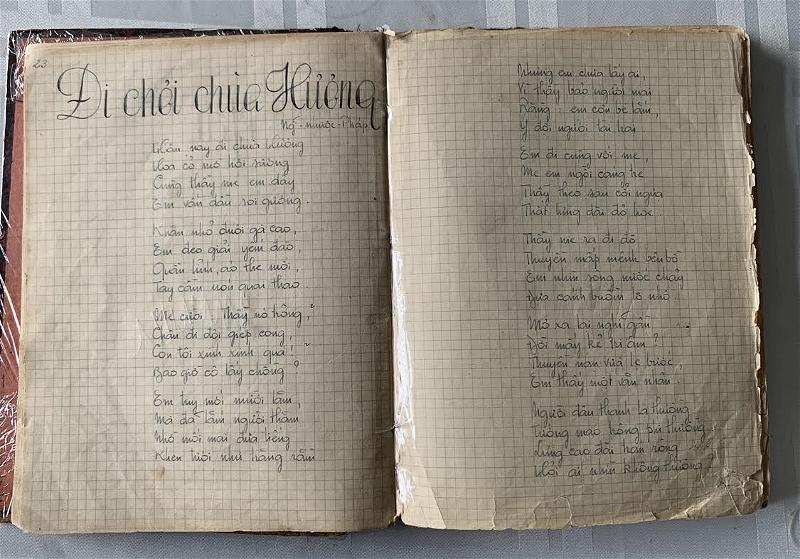 23
Đi chơi chùa Hương
Ng - nước - Pháp
Hôm nay đi chùa Hương
Hoa cỏ mờ hơi sương
Cùng thầy me em dậy
Em vấn đầu soi gương.
Khăn nhỏ đuôi gà cao,
Em đeo giải yếm đào,
Quần lĩnh, áo the mới,
Tay cầm nón quai thao.
Me cười, Thầy nó hông,
Chân đi đôi giép cong,
Con tôi xinh xinh quá!
Bao giờ cô lấy chồng?
Em tuy mới mười lăm,
Mà đã lắm người thăm
Nhờ mối mai đưa tiếng
Khen tươi như hằng rằm
Nhưng em chưa lấy ai,
Vì thầy bảo người mai
Rằng em còn bé lắm,
Ý đợi người tài trai
Em đi cùng với me,
Me em ngồi cáng tre
Thầy theo sau cỡi ngựa
Thắt lưng dài đỏ hoe.
Thầy me ra đi đò
Thuyền mấp mênh bên bờ
Em nhìn sông nước chảy
Đưa cánh buồm lô nhô.
Mơ xa lại nghĩ gần
Đời mấy kẻ tri âm?
Thuyền nan vừa lẹ bước,
Em thấy một văn nhân.
Người đâu thanh lạ thường
Tướng mạo hồng phi thường
Lưng cao dài hàn rộng
Hỏi ai nhìn không thương